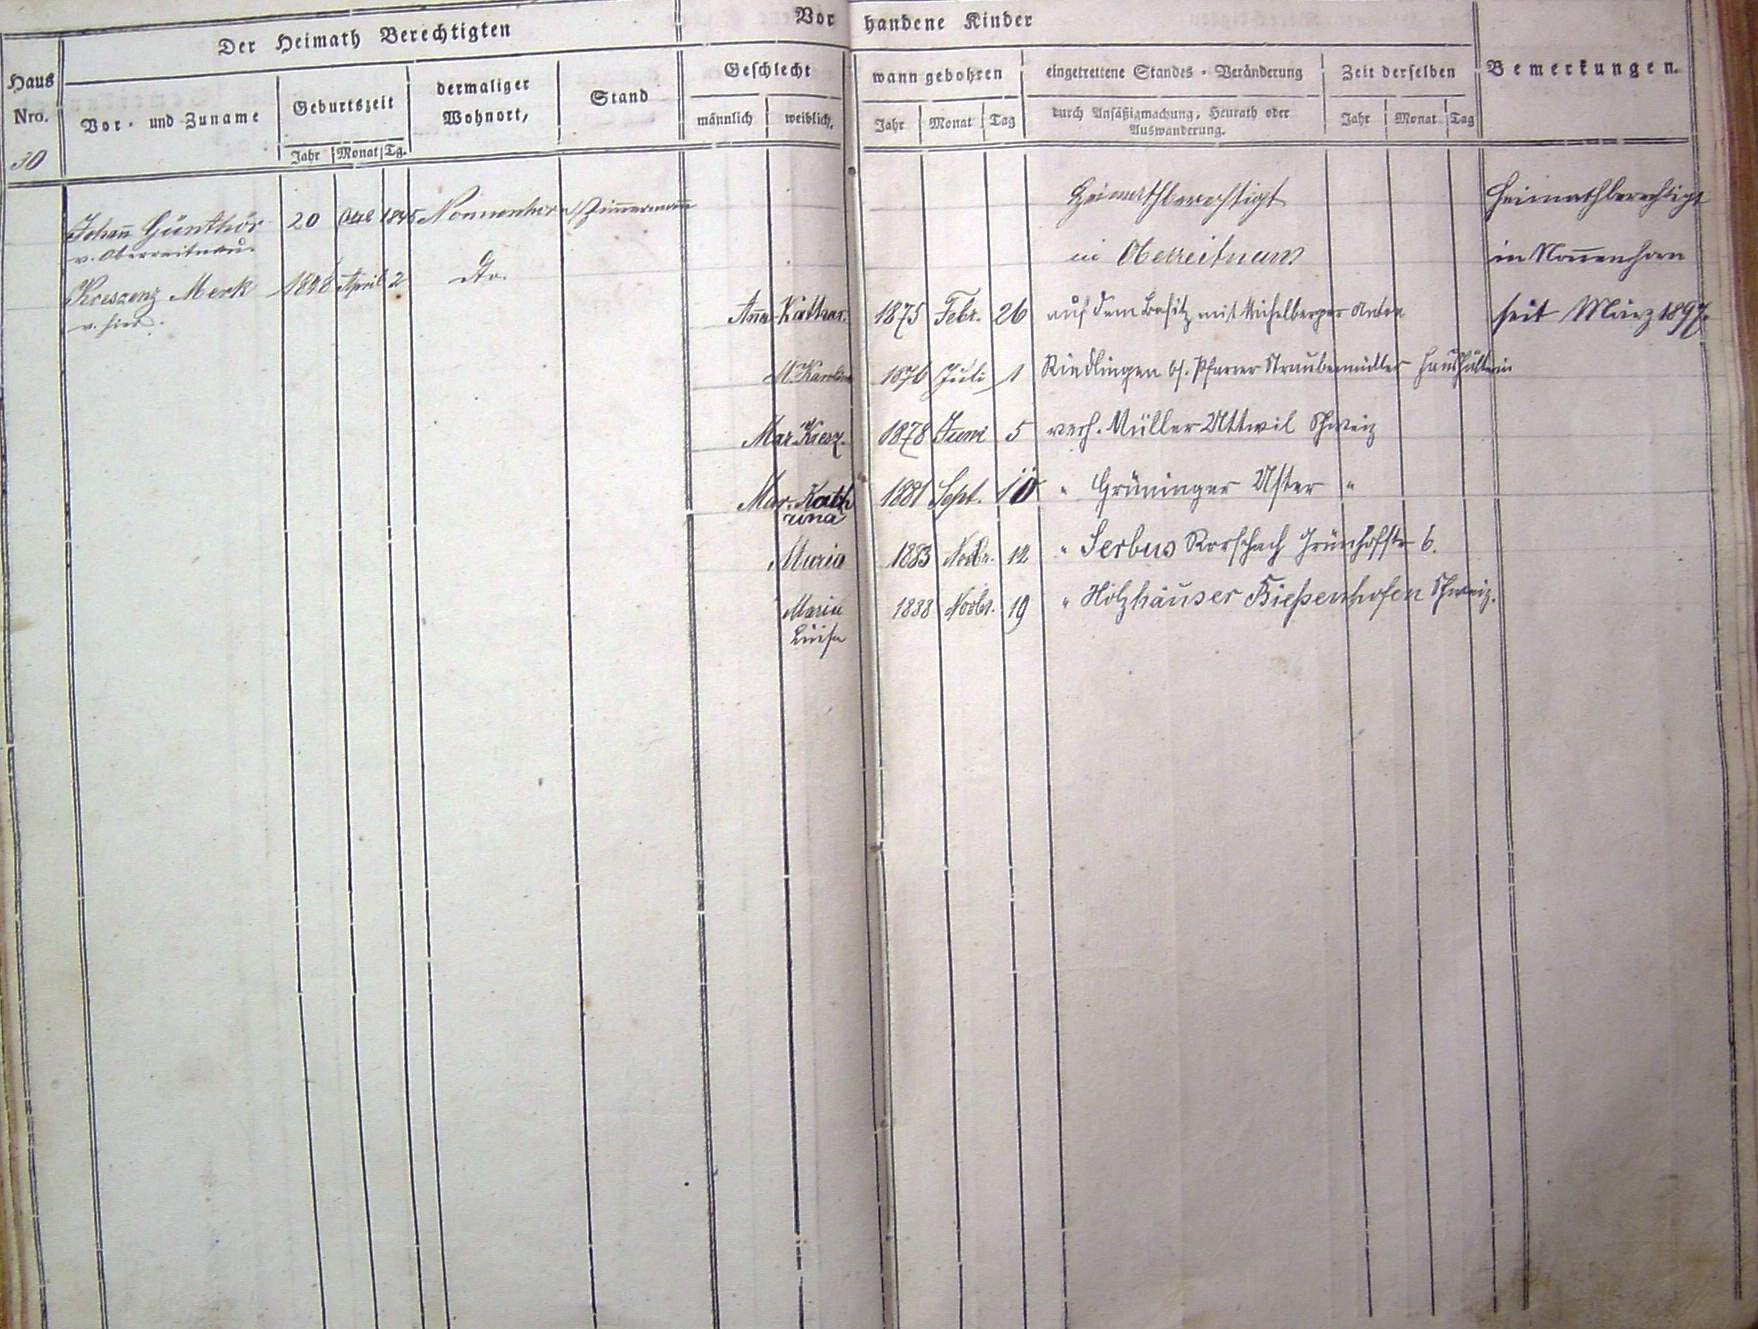 Der Heimath Berechtigten
Vorhandene Kinder
Haus Nro.
Vor- und Zuname
Geburtszeit
Jahr Monat Tg.
dermaliger Wohnort,
Stand
Geschlecht
männlich weiblich,
wann gebohren
Jahr Monat Tag
eingetrettene Standes-Veränderung
durch Ansäßigmachung, Heurath oder
Auswanderung.
Zeit derselben
Jahr Monat Tag
Bemerkungen.
30
Johan̄ Günthör 20 1845 Nonnenhorn Zim̄ermann Heimathberechtigt Heimathberechtigt
v. Oberreitnau. in Oberreitnau in Non̄enhorn
Kreszenz Merk 1848 April 2 dto.
v. hier.
Anna Kathar. 1875 Febr. 26 auf dem Besitz mit Anton seit März 1897.
M. Karolina 1876 Juli 1 Riedlingen b/. Pfarrer Straubenmüller Haushälterin
Mar. Kresz. 1878 Juni 5 verh. Müller Uttwil Schweiz
Mar. Kath 1881 Sept. 10 " Grüninger Uster "
rina
Maria 1883 Novbr. 12 " Serbus Rorschach Grünhofstr 6.
Maria 1888 Novbr. 19 " Holzhäuser Dießenhofen Schweiz.
Luisa